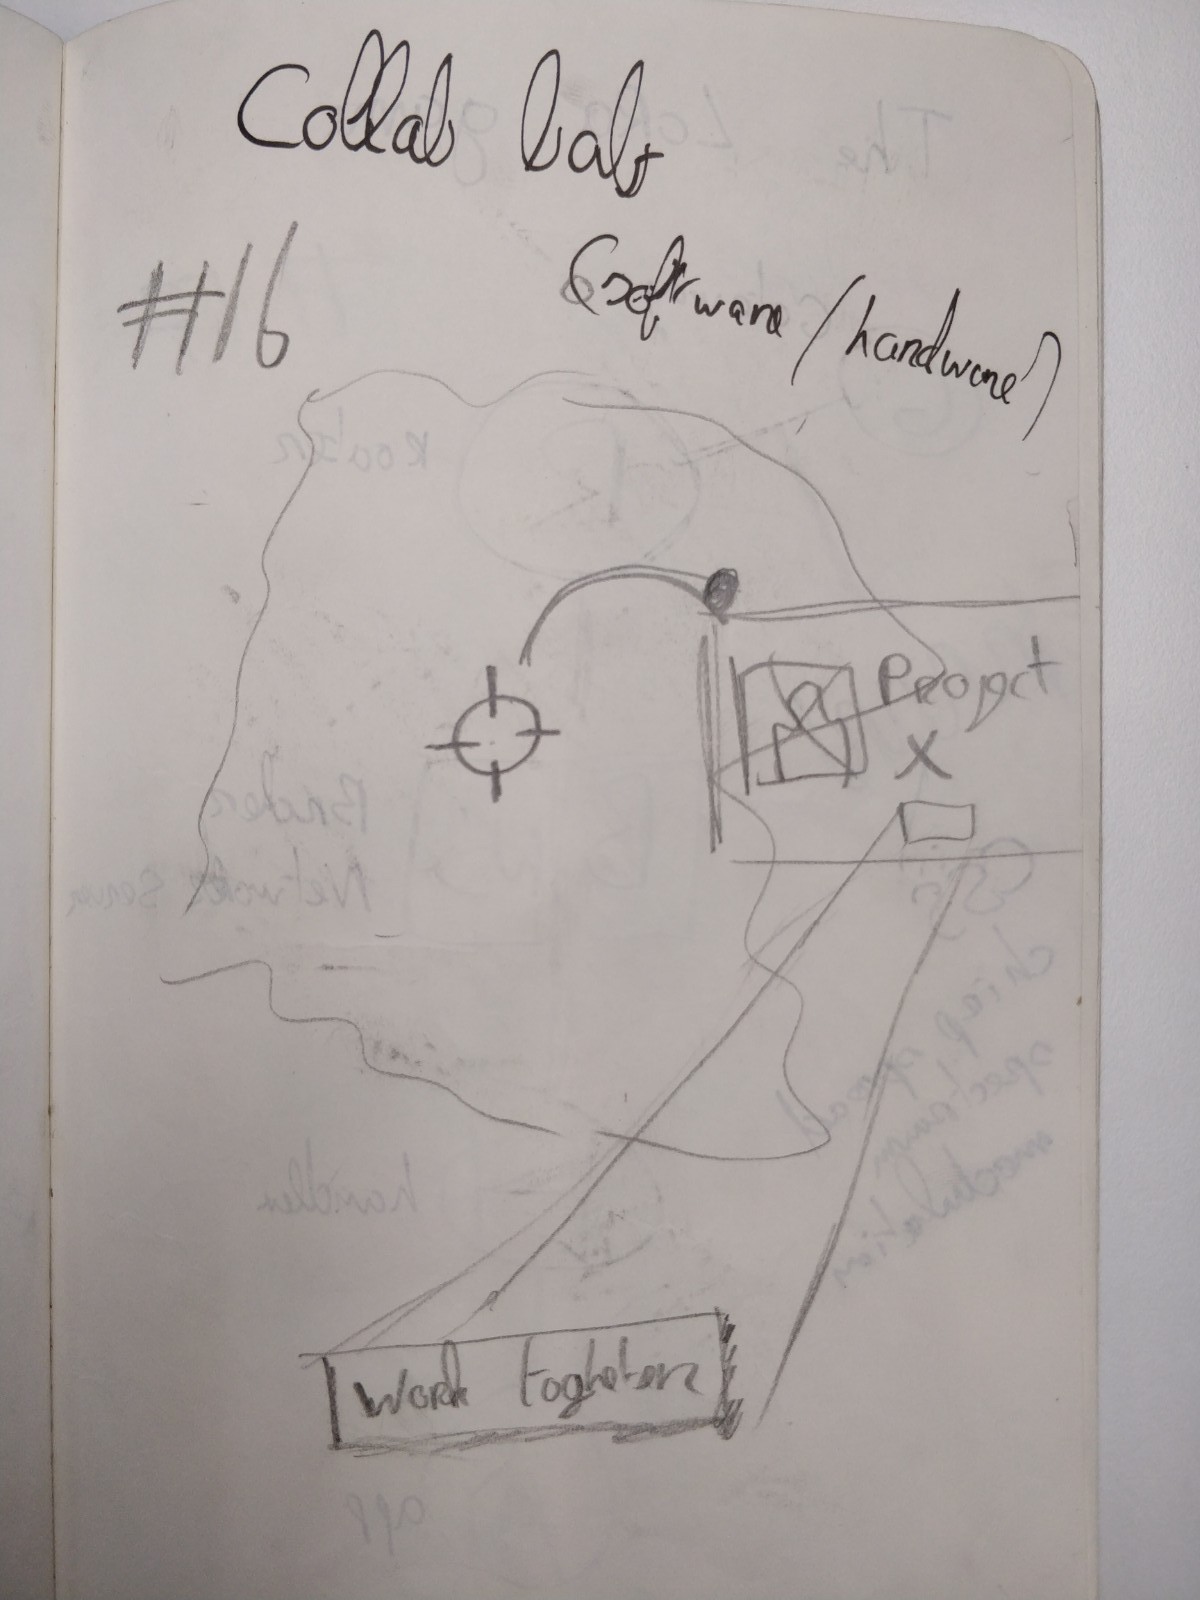 Collab
#16
(software/hardware)
Project
X
Work togheter